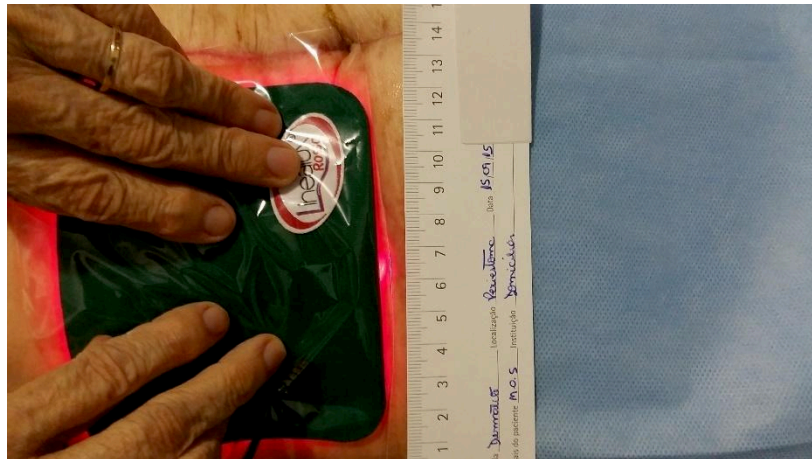 Linealux
Rosso
1 2 3 4 5 6 7 8 9 10 11 12 13 14
Dermatite Localização Periestoma Data 15/09/15
ais do paciente M.O.S Instituição Domicilias